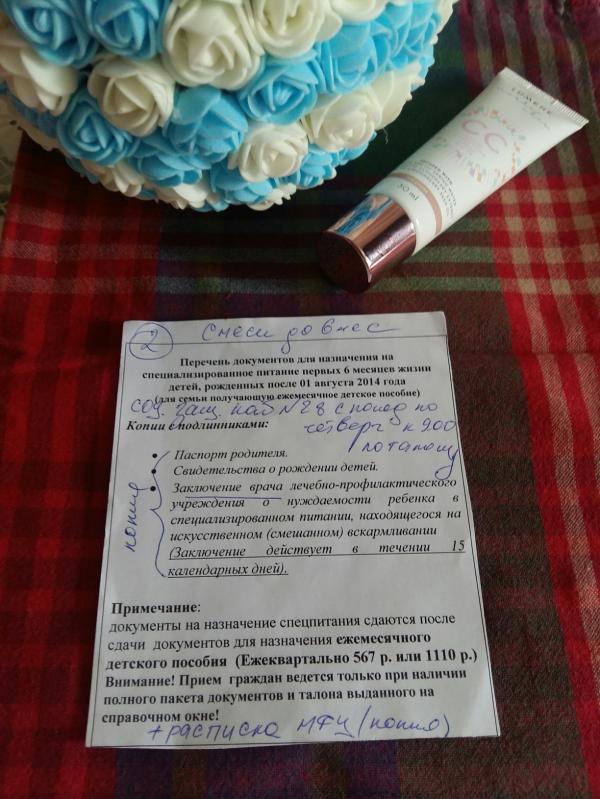 LUMENE
CC
30 ml
2 Смеси до 6 мес
Перечень документов для назначения на
специализированное питание первых 6 месяцев жизни
детей, рожденных после 01 августа 2014 года
(для семьи получающую ежемесячное детское пособие)
соц. защ. каб №28 с понед по
Копии с подлинниками: четверг к 900
по талону
• Паспорт родителя.
• Свидетельства о рождении детей.
• Заключение врача лечебно-профилактического
учреждения о нуждаемости ребенка в
специализированном питании, находящегося на
искусственном (смешанном) вскармливании
(Заключение действует в течении 15
календарных дней).
копия
Примечание:
документы на назначение спецпитания сдаются после
сдачи документов для назначения ежемесячного
детского пособия (Ежеквартально 567 р. или 1110 р.)
Внимание! Прием граждан ведется только при наличии
полного пакета документов и талона выданного на
справочном окне!
+ расписка МФЦ (копия)